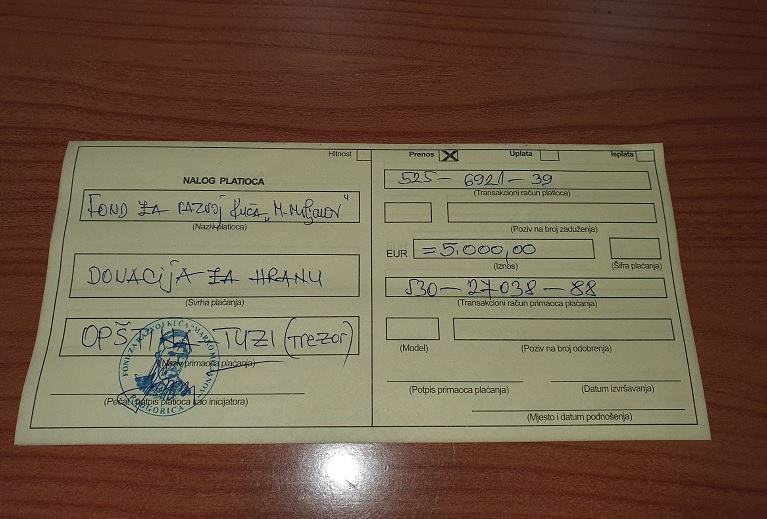 Hitnost
Prenos
Uplata
Isplata
NALOG PLATIOCA
FOND ZA RAZVOJ KUĆA „M. Miljanov"
(Naziv platioca)
DONACIJA ZA HRANU
(Svrha plaćanja)
OPŠTINA TUZI (TREZOR)
(Naziv primaoca plaćanja)
FOND ZA RAZVOJ KUĆA "MARKO MILJANOV"
PODGORICA
(Pečat i potpis platioca kao inicijatora)
525 - 6921 - 39
(Transakcioni račun platioca)
(Poziv na broj zaduženja)
EUR
=5.000,00
(Iznos)
(Šifra plaćanja)
530 - 27038 - 88
(Transakcioni račun primaoca plaćanja)
(Model)
(Poziv na broj odobrenja)
(Potpis primaoca plaćanja)
(Datum izvršavanja)
(Mjesto i datum podnošenja)